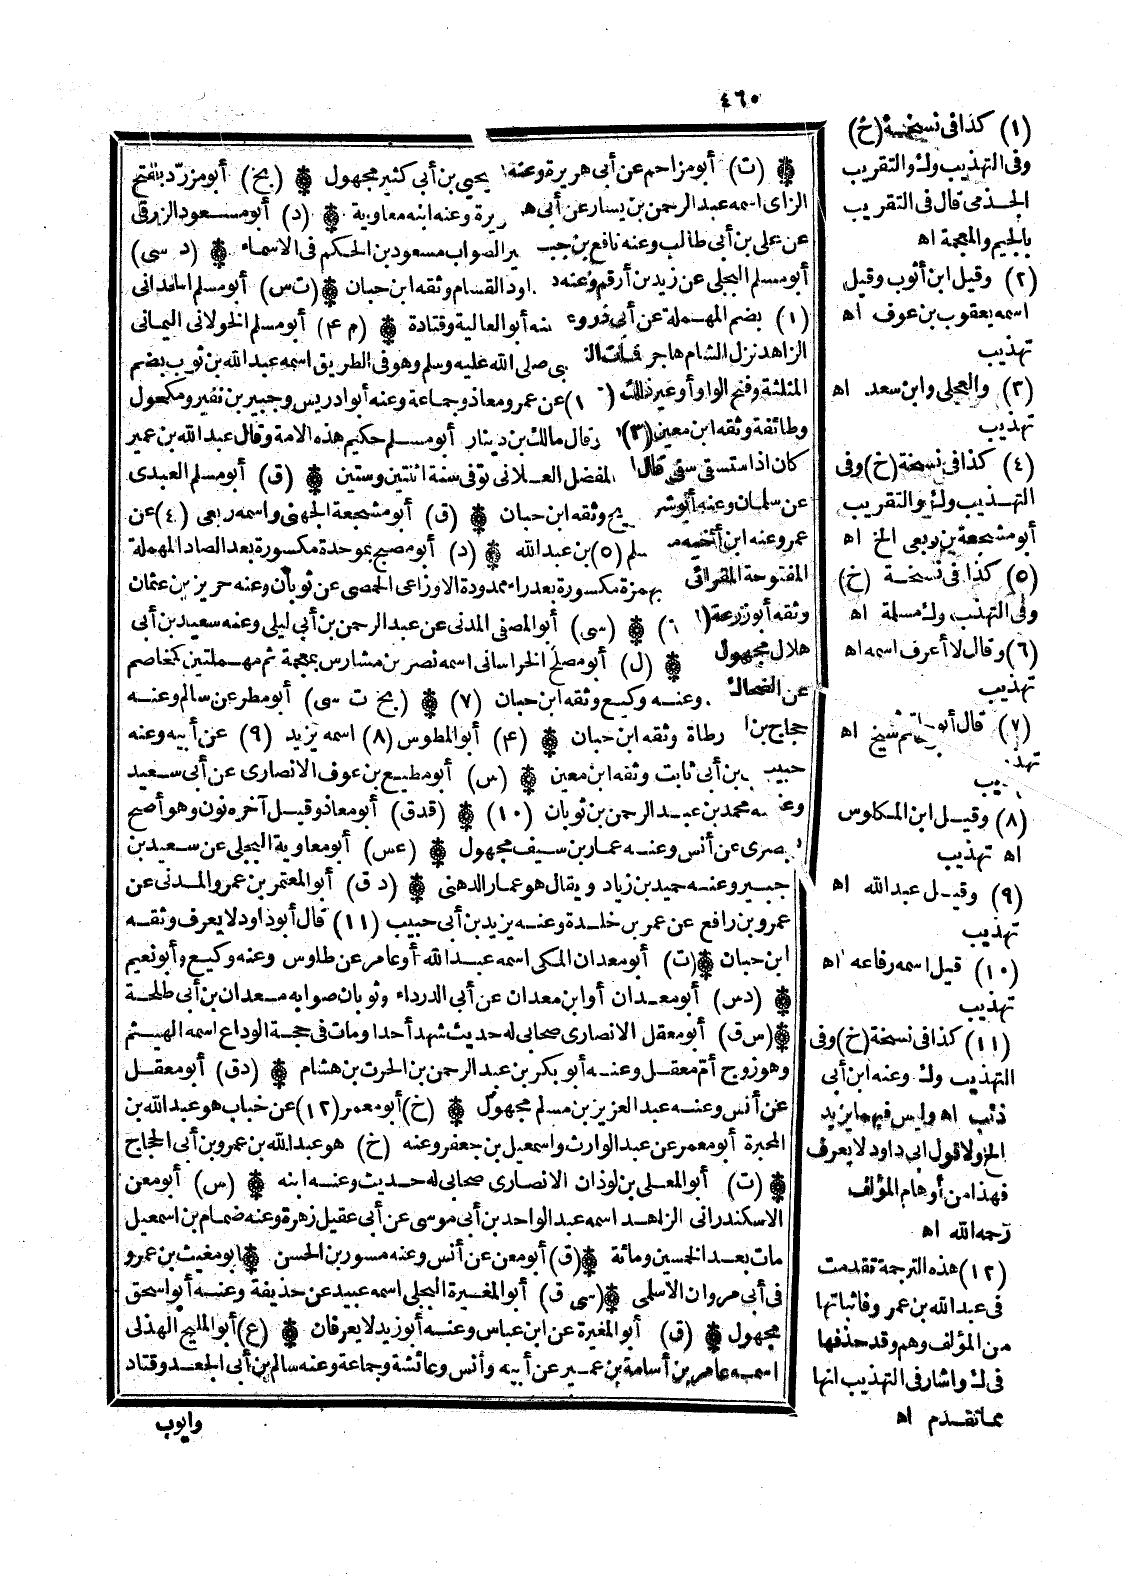 ٤٦٠
(ت) أبو مزاحم عن أبي هريرة وعنه يحيى بن أبي كثير مجهول (بخ) أبو مزرّد بالفتح
الزاى اسمه عبد الرحمن بن يسار عن أبي هريرة وعنه ابنه معاوية (د) أبو مسعود الزرقى
عن على بن أبى طالب وعنه نافع بن جبير الصواب مسعود بن الحكم فى الاسماء (د سى)
أبو مسلم البجلى عن زيد بن أرقم وعنه داود القسام وثقه ابن حبان (ت س) أبو مسلم الجذمى
(١) بضم المهملة عن أبى ذر وعنه أبو العالية وقتادة (م ٤) أبو مسلم الخولانى اليمانى
الزاهد نزل الشام هاجر فمات النبى صلى الله عليه وسلم وهو فى الطريق اسمه عبد الله بن ثوب بضم
المثلثة وفتح الواو أو غير ذلك عن عمر ومعاذ وجماعة وعنه أبو ادريس وجبير بن نفير ومكحول
وطائفة وثقه ابن معين (٣) وقال مالك بن دينار أبو مسلم حكيم هذه الامة وقال عبد الله بن عمير
كان اذا استسقى سقى قال المفضل الغلابى توفى سنة اثنتين وستين (ق) أبو مسلم العبدى
عن سلمان وعنه أبو شريح وثقه ابن حبان (ق) أبو مشجعة الجهنى واسمه ربعى (٤) عن
عمر وعنه ابن أخيه مسلم (٥) بن عبد الله (د) أبو مصبح بموحدة مكسورة بعد الصاد المهملة
المفتوحة المقرائى بهمزة مكسورة بعد راء ممدودة الاوزاعى الحمصى عن ثوبان وعنه حريز بن عثمان
وثقه أبو زرعة (٦) (سى) أبو المصفى المدنى عن عبد الرحمن بن أبى ليلى وعنه سعيد بن أبى
هلال مجهول (ل) أبو مصلح الخراسانى اسمه نصر بن مشارس بمعجمة ثم مهملتين كمخاصم
عن الضحاك وعنه وكيع وثقه ابن حبان (٧) (بخ ت سى) أبو مطر عن سالم وعنه
حجاج بن ارطاة وثقه ابن حبان (٤) أبو المطوس (٨) اسمه يزيد (٩) عن أبيه وعنه
حبيب بن أبى ثابت وثقه ابن معين (س) أبو مطيع بن عوف الانصارى عن أبى سعيد
وعنه محمد بن عبد الرحمن بن ثوبان (١٠) (قد ق) أبو معاذ وقيل آخره نون وهو أصح
بصرى عن أنس وعنه عمار بن سيف مجهول (عس) أبو معاوية البجلى عن سعيد بن
جبير وعنه حميد بن زياد ويقال هو عمار الدهنى (د ق) أبو المعتمر بن عمرو المدنى عن
عمرو بن رافع عن عمر بن خلدة وعنه يزيد بن أبى حبيب (١١) قال أبو داود لا يعرف وثقه
ابن حبان (ت) أبو معدان المكى اسمه عبد الله أو عامر عن طاوس وعنه وكيع وأبو نعيم
(د س) أبو معدان أو ابن معدان عن أبى الدرداء وثوبان صوابه معدان بن أبى طلحة
(س ق) أبو معقل الانصارى صحابى له حديث شهد أحدا ومات فى حجة الوداع اسمه الهيثم
وهو زوج أم معقل وعنه أبو بكر بن عبد الرحمن بن الحرث بن هشام (د ق) أبو معقل
عن أنس وعنه عبد العزيز بن مسلم مجهول (خ) أبو معمر (١٢) عن خباب هو عبد الله بن
سخبرة أبو معمر عن عبد الوارث واسمعيل بن جعفر وعنه (خ) هو عبد الله بن عمرو بن أبى الحجاج
(ت) أبو المعلى بن لوذان الانصارى صحابى له حديث وعنه ابنه (س) أبو معن
الاسكندرانى الزاهد اسمه عبد الواحد بن أبى موسى عن أبى عقيل زهرة وعنه ضمام بن اسمعيل
مات بعد الخمسين ومائة (ق) أبو معن عن أنس وعنه مسور بن الحسن أبو مغيث بن عمرو
فى أبى مروان الاسلمى (سى ق) أبو المغيرة البجلى اسمه عبيد عن حذيفة وعنه أبو اسحق
مجهول (ق) أبو المغيرة عن ابن عباس وعنه أبو زيد لا يعرفان (ع) أبو المليح الهذلى
اسمه عامر بن أسامة بن عمير عن أبيه وأنس وعائشة وجماعة وعنه سالم بن أبى الجعد وقتاد
وأيوب
(١) كذا فى نسخة (خ)
وفى التهذيب ولك والتقريب
الجذمى قال فى التقريب
بالجيم والمعجمة اه
(٢) وقيل ابن أثوب وقيل
اسمه يعقوب بن عوف اه
تهذيب
(٣) والعجلى وابن سعد. اه
تهذيب
(٤) كذا فى نسخة (خ) وفى
التهذيب ولك والتقريب
أبو مشجعة بن ربعى الخ اه
(٥) كذا فى نسخة (خ)
وفى التهذيب ولك مسلمة اه
(٦) وقال لا أعرف اسمه اه
تهذيب
(٧) قال أبو حاتم شيخ اه
تهذيب
(٨) وقيل ابن المكلوس
اه تهذيب
(٩) وقيل عبد الله اه
تهذيب
(١٠) قيل اسمه رفاعه اه
تهذيب
(١١) كذا فى نسخة (خ) وفى
التهذيب ولك وعنه ابن أبى
ذئب اه وليس فيهما يزيد
الخ ولا قول ابى داود لا يعرف
فهذا من أوهام المؤلف
رحمه الله اه
(١٢) هذه الترجمة تقدمت
فى عبد الله بن عمر وفاثباتها
من المؤلف وهم وقد حذفها
فى لك واشار فى التهذيب انها
مما تقدم اه